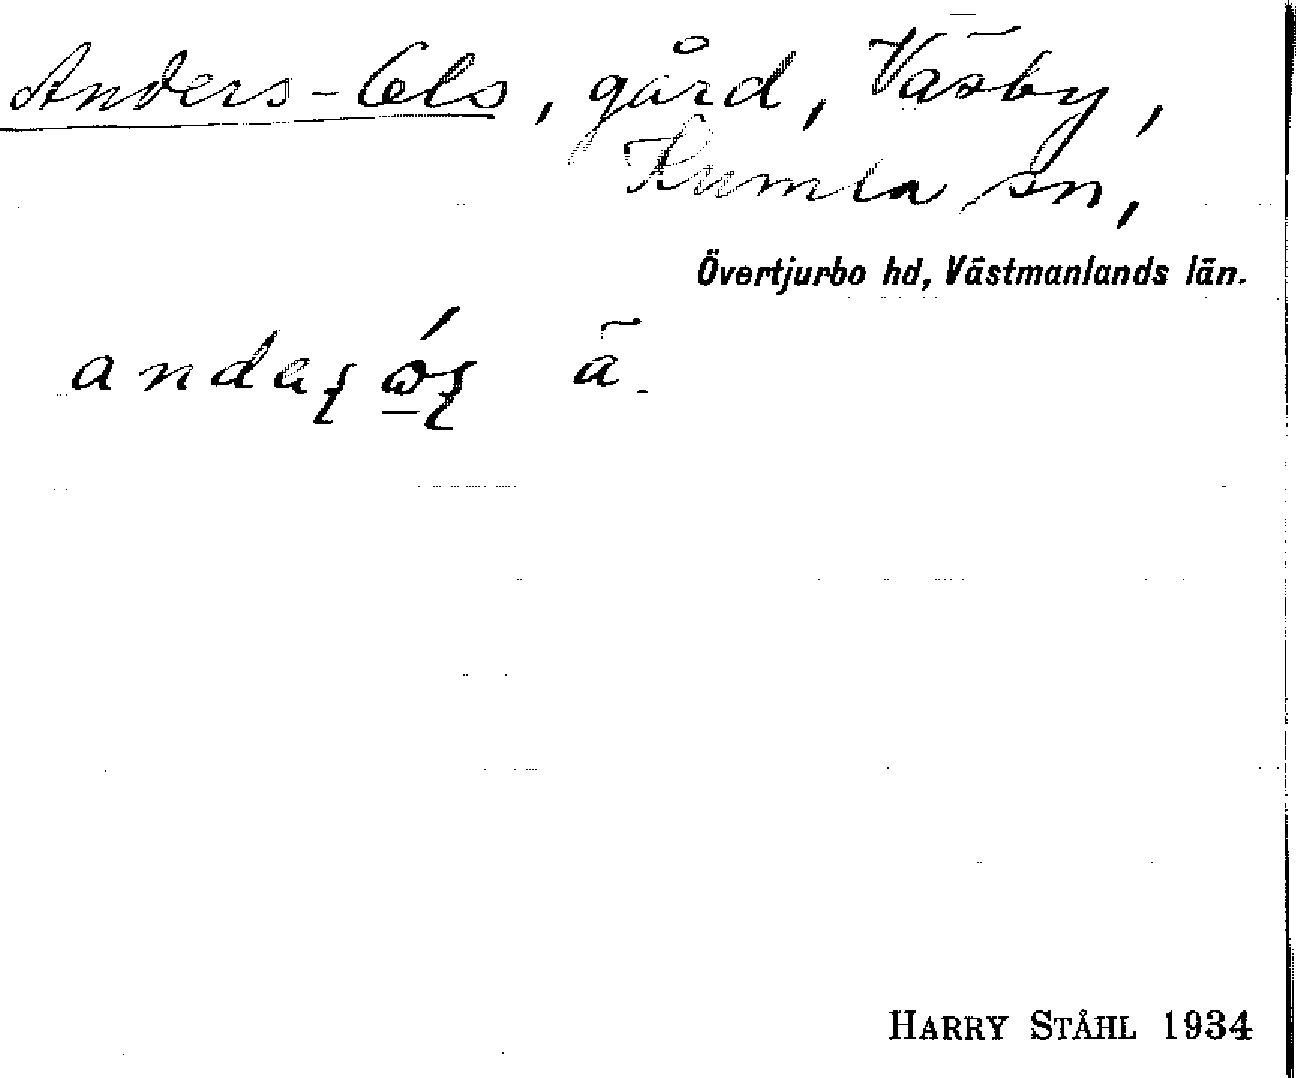 Anders-Ols, gård, Väsby,
Kumla sn,
Övertjurbo hd, Västmanlands län.
ä.
HARRY STÅHL 1934